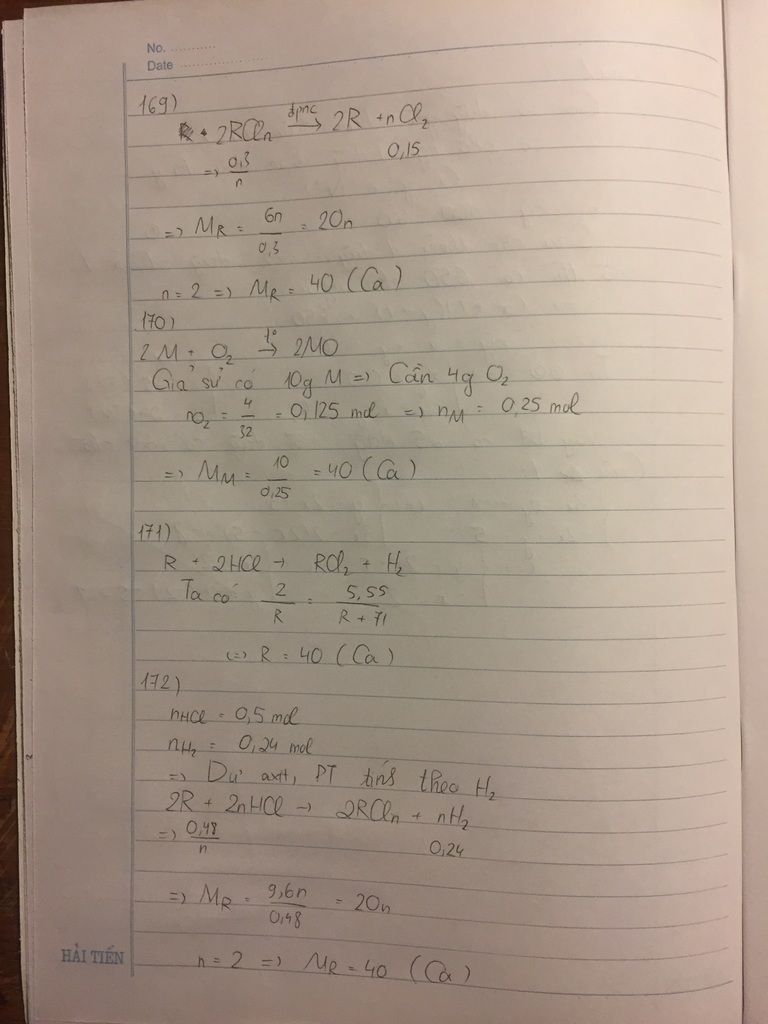 No. ...........
Date ......................
169)
2RCln đpnc→ 2R + nCl2
=> 0,3/n 0,15
=> MR = 6n/0,3 = 20n
n = 2 => MR = 40 (Ca)
170)
2M + O2 t°→ 2MO
Giả sử có 10g M => Cần 4g O2
nO2 = 4/32 = 0,125 mol => nM = 0,25 mol
=> MM = 10/0,25 = 40 (Ca)
171)
R + 2HCl → RCl2 + H2
Ta có 2/R = 5,55/R + 71
(=) R = 40 (Ca)
172)
nHCl = 0,5 mol
nH2 = 0,24 mol
=> Dư axit, PT tính theo H2
2R + 2nHCl → 2RCln + nH2
=> 0,48/n 0,24
=> MR = 9,6n/0,48 = 20n
n = 2 => MR = 40 (Ca)
HẢI TIẾN